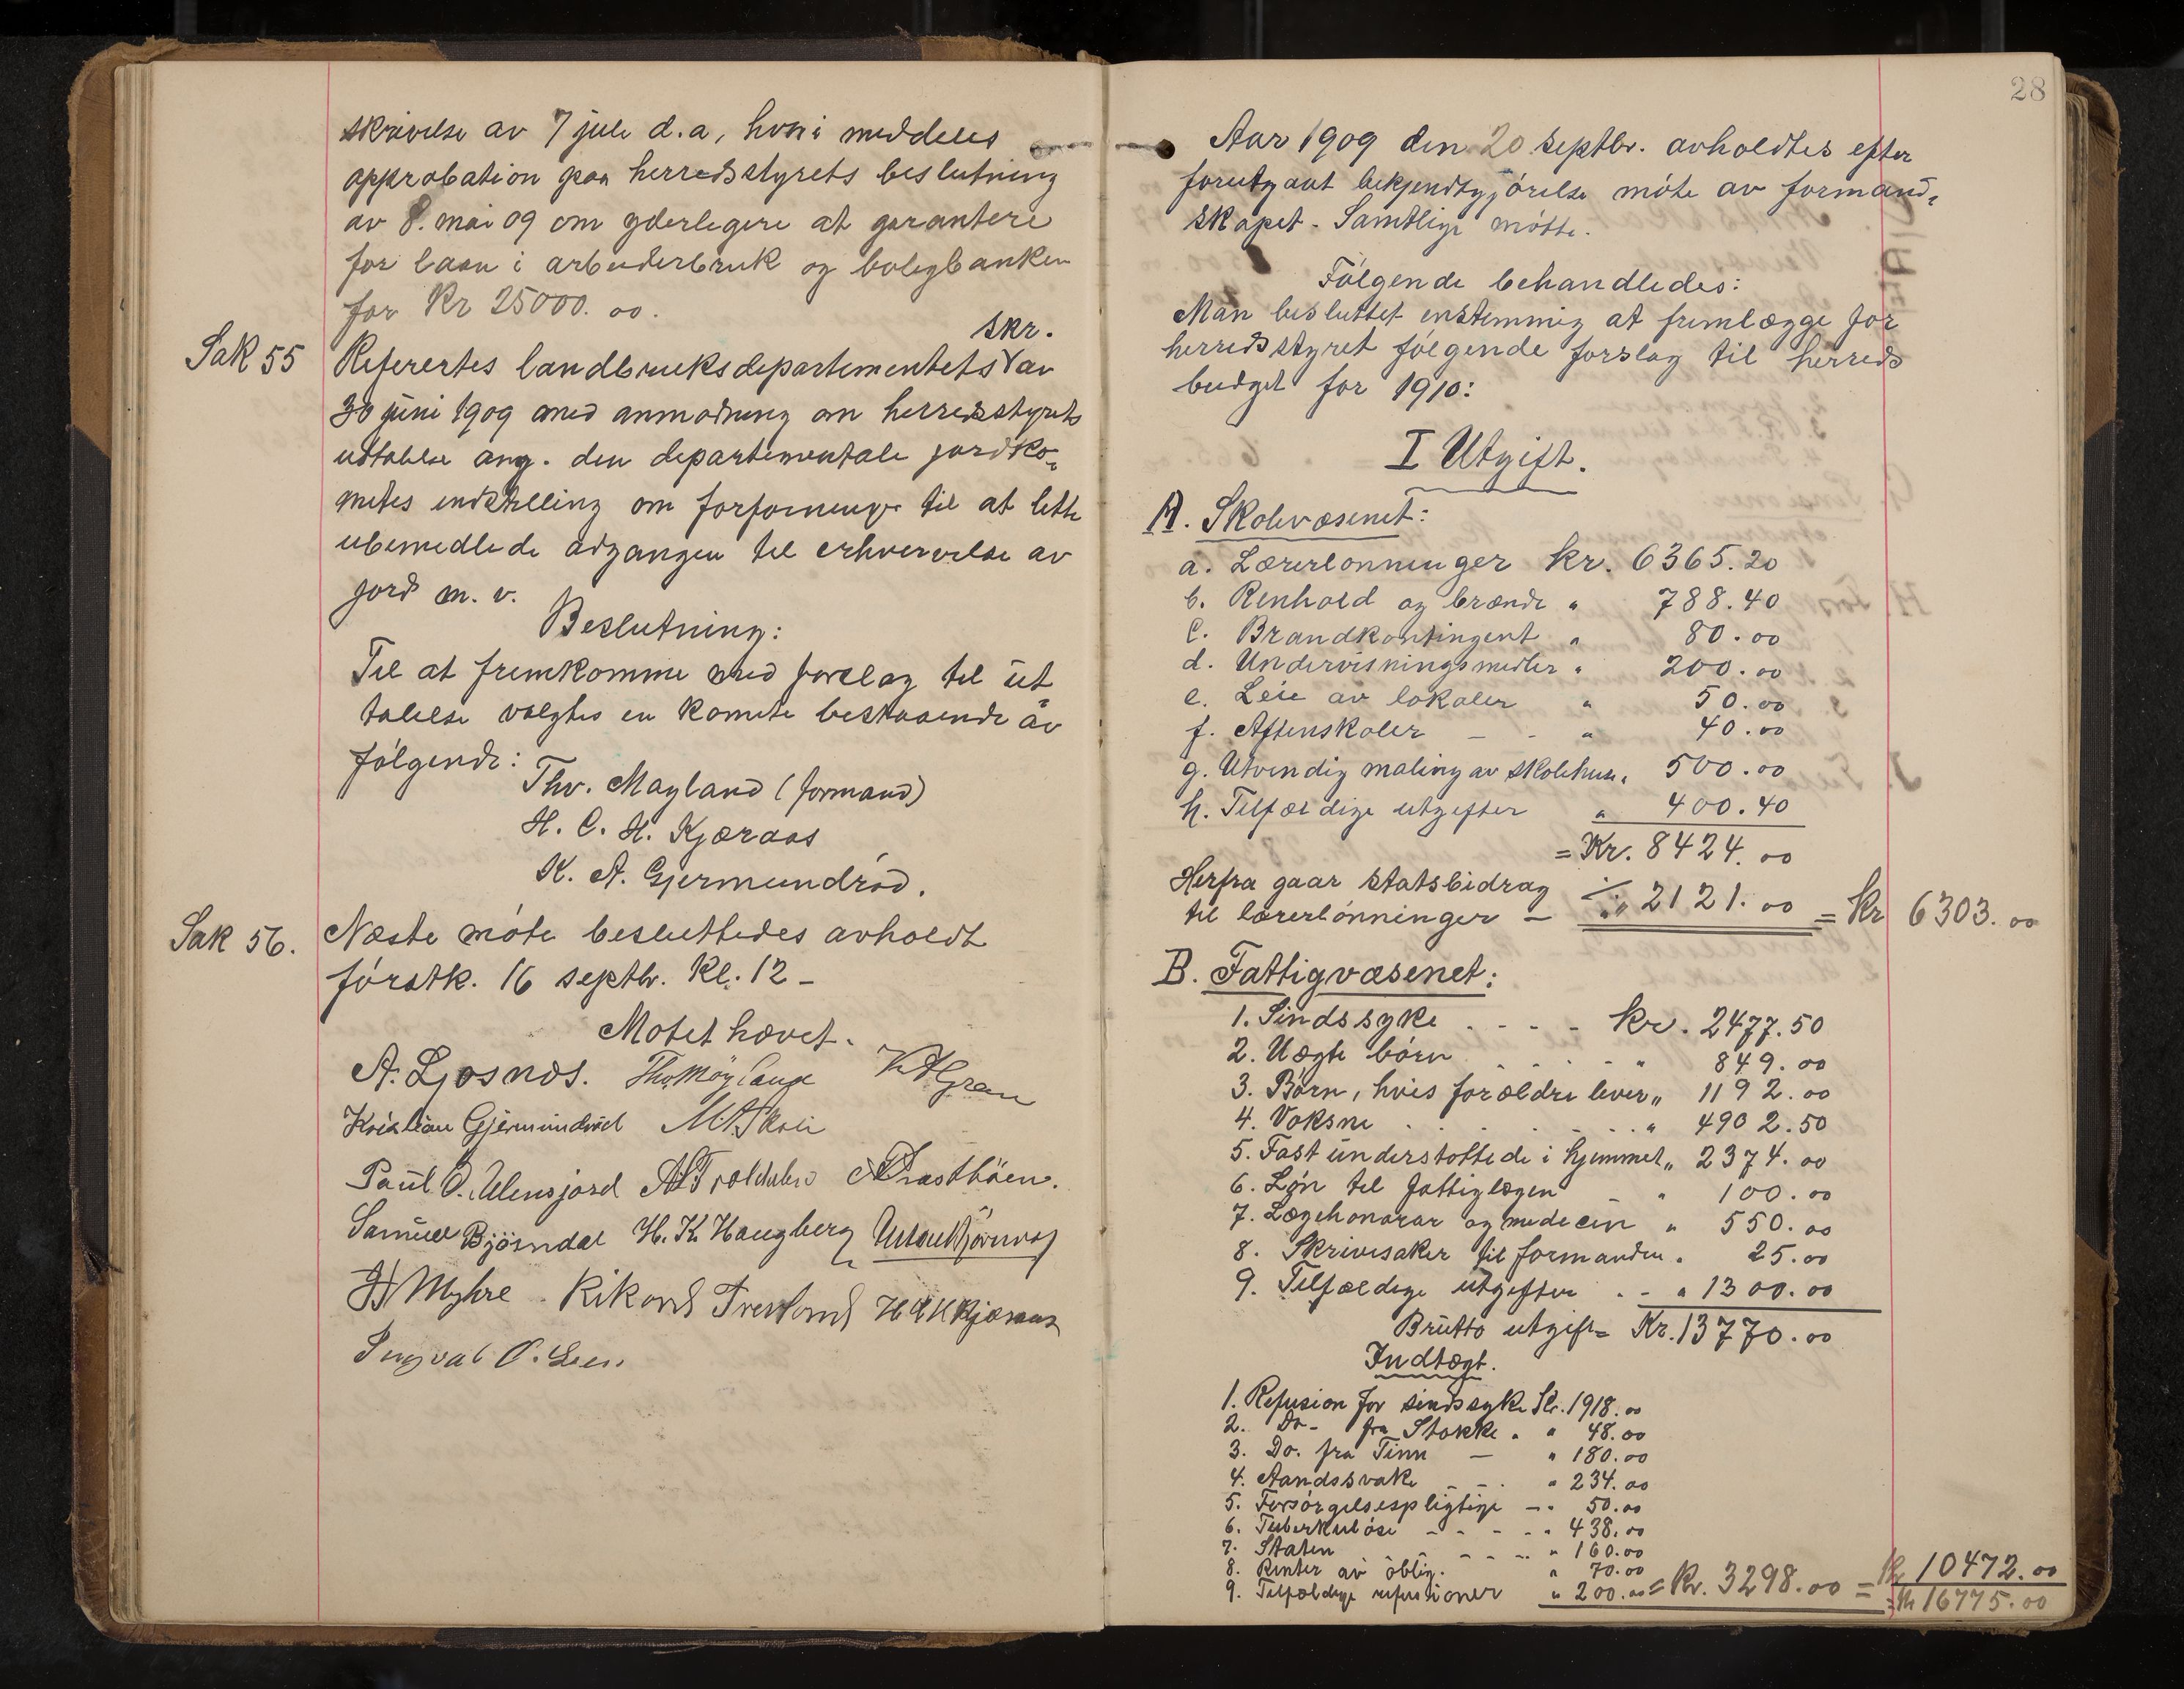 skrivelse av 7 juli d.a, hvori meddeles
approbation paa herredsstyrets beslutning
av 8. mai 09 om yderligere at garantere
for laan i arbeiderbruk og boligbanken
for Kr 25000.00.
Sak 55
skr.
Referertes landbruksdepartementets av
30 juni 1909 med anmodning om herredsstyrets
udtalelse ang. den departementale jordko-
mites indstilling om forføininger til at lette
ubemedlede adgangen til erhvervelse av
jord m. v.
Beslutning:
Til at fremkomme med forslag til ut
talelse valgtes en komite bestaaende av
følgende:
Thv. Mayland (formand)
H. C. H. Kjæraas
K. A. Gjermundrød.
Sak 56.
Næste møte besluttedes avholdt
førstk. 16 septbr. kl. 12 –
Møtet hævet.
A. Ljosnæs. K A Gran
Kristian Gjermundrød M. A. Skoli
Paul O. Ulensjord
Samuel Bjørndal H. K. Haugberg
Myhre Rikard H C H Kjæraas
Ingval O. Lien
28
Aar 1909 den 20 septbr. avholdtes efter
forutgaat bekjendtgjørelse møte av formand-
skapet – Samtlige møtte.
Følgende behandledes:
Man besluttet enstemmig at fremlægge for
herredsstyret følgende forslag til herreds
budget for 1910:
I Utgift.
A. Skolevæsenet:
a. Lærerlønninger Kr. 6365.20
b. Renhold og brænde " 788.40
c. Brandkontingent " 80.00
d. Undervisningsmidler " 200.00
e. Leie av lokaler " 50.00
f. Aftenskoler – - " 40.00
g. Utvendig maling av skolehuse " 500.00
h. Tilfældige utgifter " 400.40
= Kr. 8424.00
Herfra gaar statsbidrag
til lærerlønninger – ÷ " 2121.00 = Kr 6303.00
B. Fattigvæsenet:
1. Sindssyke . - - - Kr. 2477.50
2. Uægte børn . . . - " 849.00
3. Børn, hvis forældre lever " 1192.00
4. Voksne . . . . . " 4902.50
5. Fast understøttede i hjemmet " 2374.00
6. Løn til fattiglægen – " 100.00
7. Lægehonorar og medecin " 550.00
8. Skrivesaker til formanden " 25.00
9. Tilfældige utgifter . - " 1300.00
Brutto utgift = Kr. 13770.00
Indtægt.
1. Refusion for sindssyke Kr. 1918.00
2. Do – fra Stokke . " 48.00
3. Do. fra Tinn – " 180.00
4. Aandssvake – – . " 234.00
5. Forsørgelsespligtige – " 50.00
6. Tuberkuløse – - – - " 438.00
7. Staten - - – – – " 160.00
8. Renter av oblig. " 70.00
9. Tilfældige refusioner " 200.00 = Kr. 3298.00 = Kr 10472.00
= Kr 16775.00